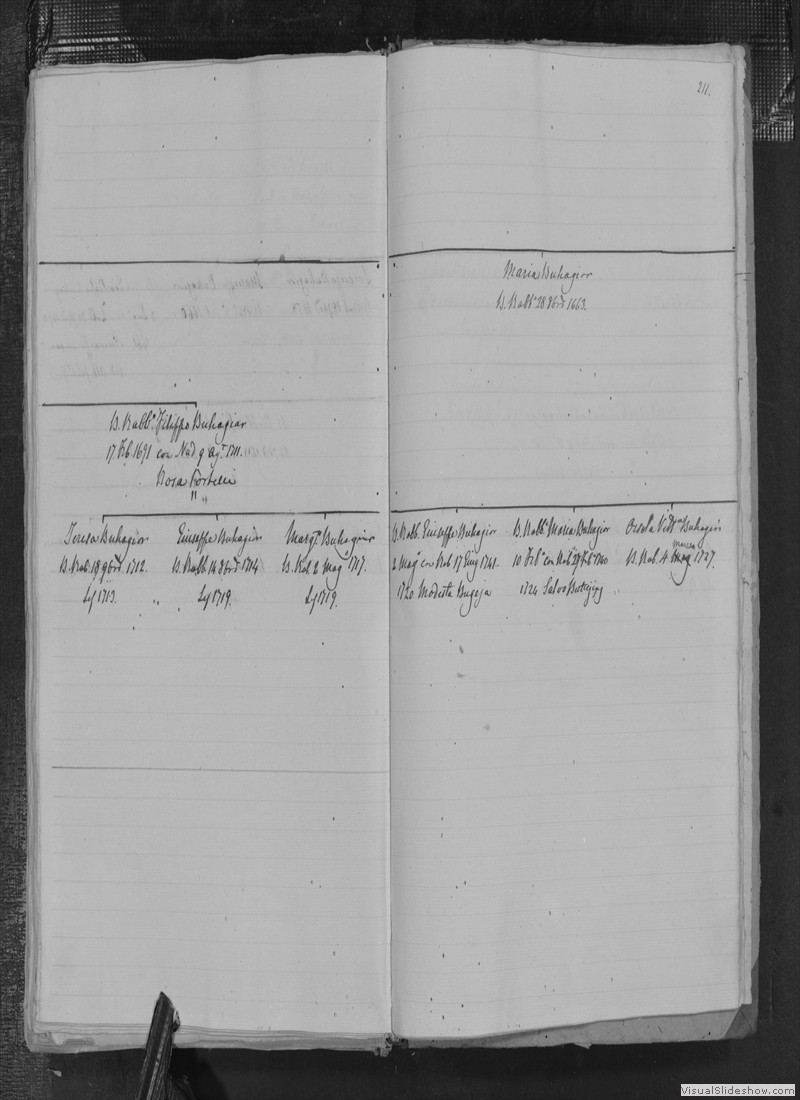 211.
Maria Buhagiar
B. Rabb. 28 8bre 1663.
B. Rabb. Filippo Buhagiar
17 Feb 1691 con Nad 9 Ag. 1711.
Rosa Portelli
" "
Teresa Buhagiar
B. Rab. 18 9bre 1712.
Lj 1713. "
Giuseffe Buhagiar
B. Rabb. 14 8bre 1714
Lj 1719.
Marg. Buhagiar
B. Rab 2 Mag 1717.
Lj 1719.
B. Rabb. Giuseffe Buhagiar
2 Mag. con Rab 17 Giug 1741.
1720 Modesta Bugeja
B. Rabb. Maria Buhagiar
10 Feb. con Rab. 29 Feb 1740
1724 Salvo
Orsola Buhagiar
B. Rab. 4 Marzo 1727.
VisualSlideshow.com